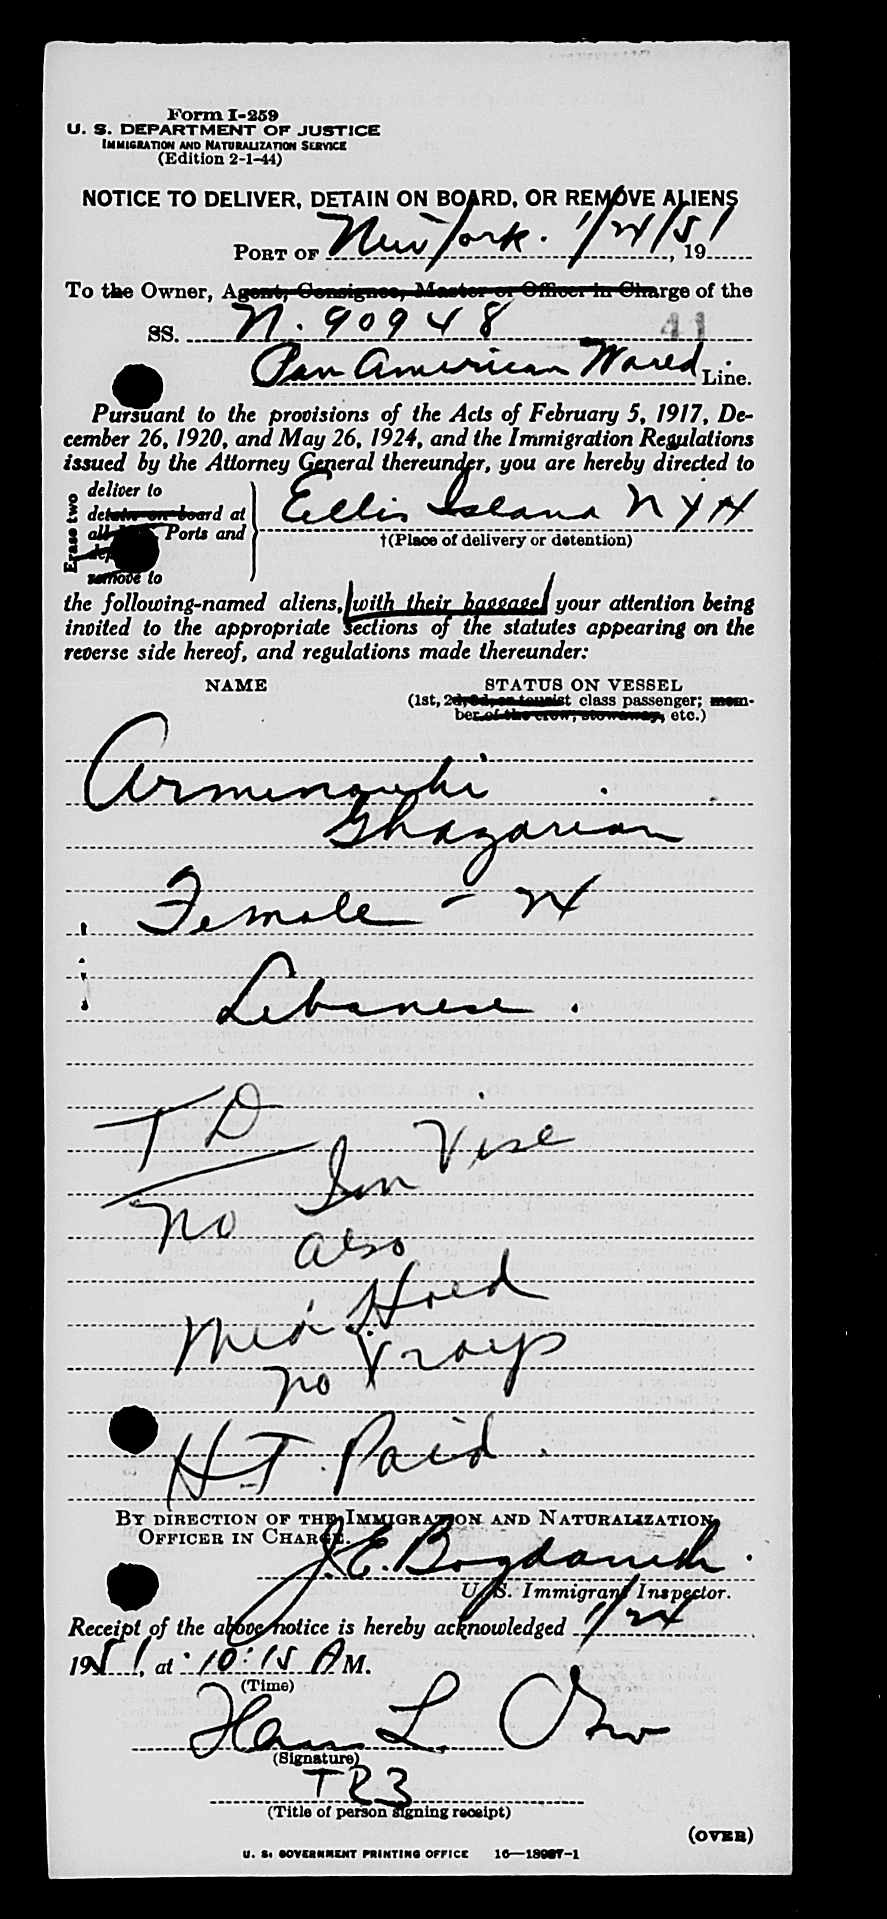 Form I-259
U. S. DEPARTMENT OF JUSTICE
IMMIGRATION AND NATURALIZATION SERVICE
(Edition 2-1-44)
NOTICE TO DELIVER, DETAIN ON BOARD, OR REMOVE ALIENS
PORT OF New York. 1/24/51, 19
To the Owner, Agent, Consignee, Master or Officer in Charge of the
SS. N. 90948 41
Pan American World Line.
Pursuant to the provisions of the Acts of February 5, 1917, De-
cember 26, 1920, and May 26, 1924, and the Immigration Regulations
issued by the Attorney General thereunder, you are hereby directed to
Erase two
deliver to
detain on board at
all Ports and
remove to
Ellis Island N Y H
†(Place of delivery or detention)
the following-named aliens, with their baggage, your attention being
invited to the appropriate sections of the statutes appearing on the
reverse side hereof, and regulations made thereunder:
NAME STATUS ON VESSEL
(1st, 2d, 3d, or tourist class passenger; mem-
ber of the crew, stowaway, etc.)
Armenouhi
Ghazarian
Female - 24
Lebanese.
T D
No Im Vise
also
Med Hold
no Xrays
H.T. Paid.
BY DIRECTION OF THE IMMIGRATION AND NATURALIZATION
OFFICER IN CHARGE.
J.E. Bogdanich.
U. S. Immigrant Inspector.
Receipt of the above notice is hereby acknowledged 1/24
1951, at 10:15 A M.
(Time)
L.
(Signature)
TR3
(Title of person signing receipt)
(OVER)
U. S. GOVERNMENT PRINTING OFFICE 16—18987-1